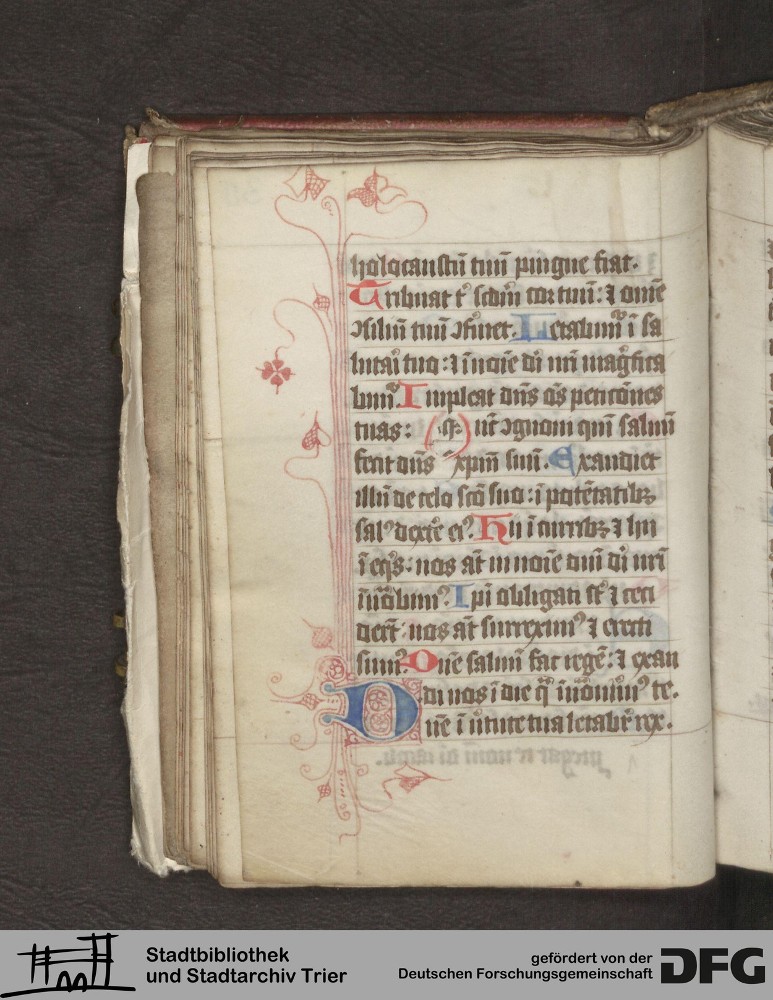 holocaustū tuū pingue fiat.
Tribuat t᷑ scdm̄ cor tuū: ⁊ omē
ↄsiliū tuū ↄfirmet. Letabim᷑ ī sa
lutaꝛi tuo: ⁊ ī noīe dī nrī mag̅fica
bim᷑. Impleat dn̄s oēs peticōnes
tuas: nūc ↄgnoui qm̄ saluū
fecit dn̄s xp̄m suū. Exaudiet
illū de celo scō suo: ī potētatibꝫ
salꝰ dext̄e eiꝰ. Hii ī curribꝫ ⁊ hii
ī eqis: nos at̄ in noīe dn̄i dī nrī
īuocabimꝰ. Ipī obligati st̄ ⁊ ceci
dert̄: nos at̄ surreximꝰ ⁊ erecti
sumꝰ. Dn̄e saluū fac regē: ⁊ exau
di nos ī die qᵃ īuocauimꝰ te.
Dn̄e ī v̄tute tua letabit᷑ rex.
Stadtbibliothek
und Stadtarchiv Trier
gefördert von der
Deutschen Forschungsgemeinschaft
DFG